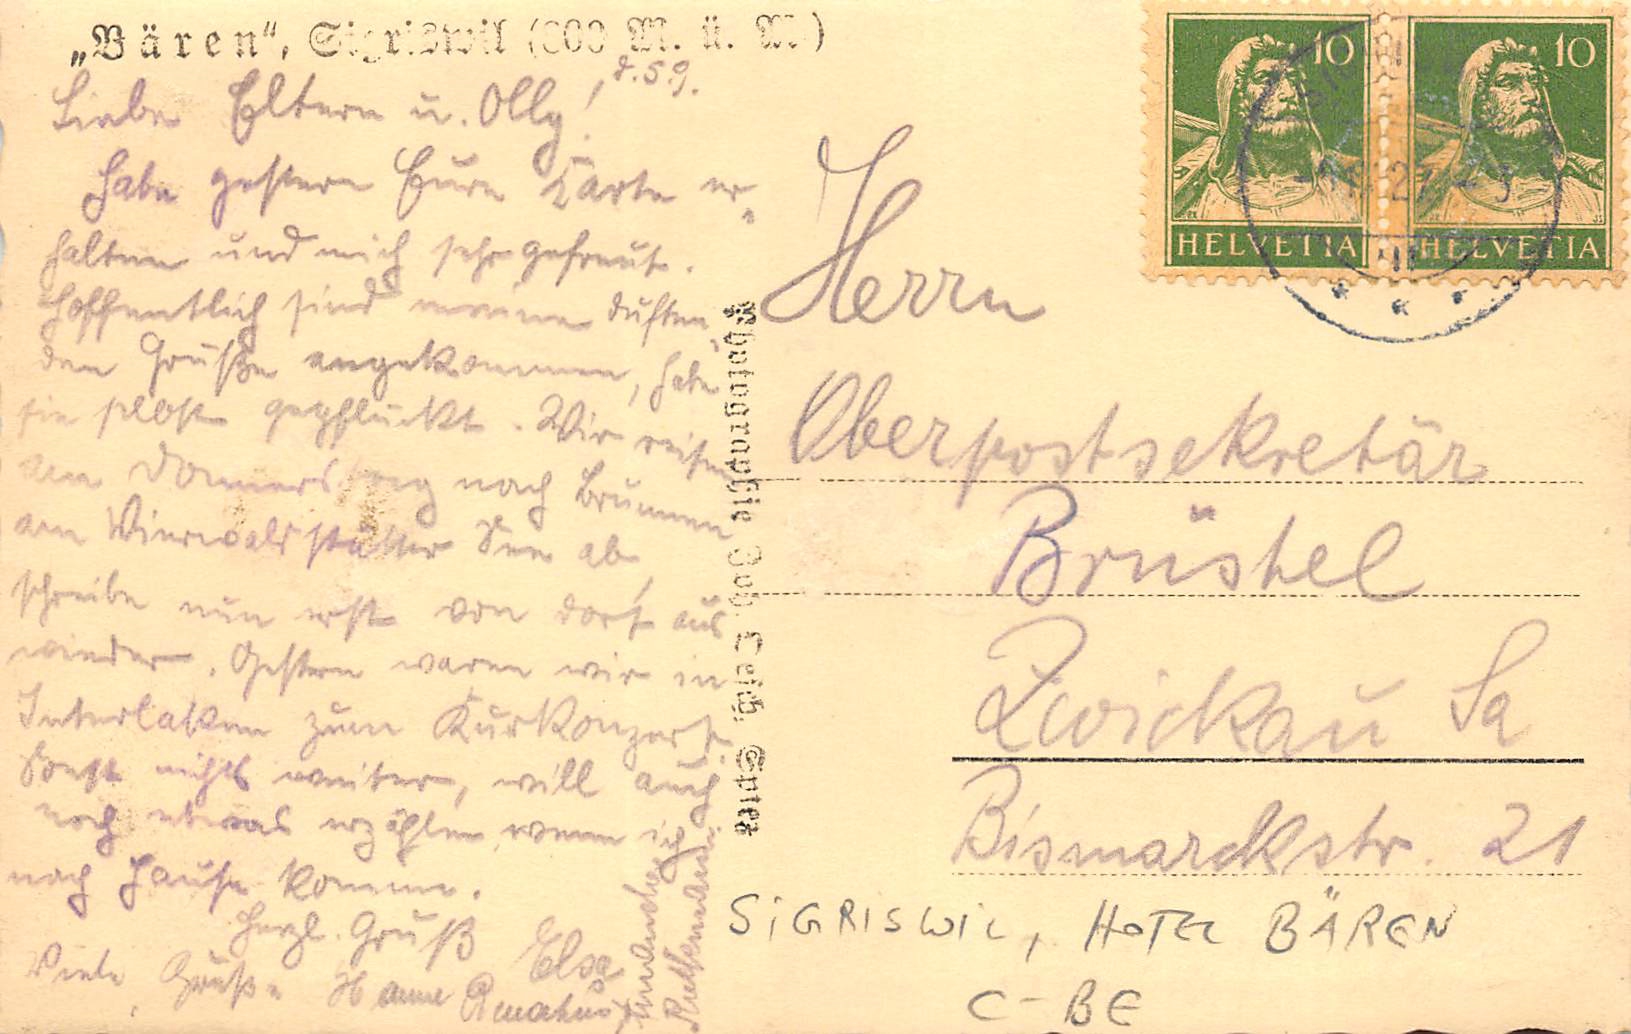 „Bären“, Sigriswil (800 M. ü. M.)
d. 5.9.
Liebe Eltern u. Olly!
Habe gestern Eure Karte er-
halten und mich sehr gefreut.
Hoffentlich sind meine duften-
den Grüße angekommen, habe
sie selbst gepflückt. Wir reisen
am Donnerstag nach Brunnen
am Vierwaldstätter See ab,
schreibe nun erst von dort aus
wieder. Gestern waren wir in
Interlaken zum Kurkonzert.
Sonst nichts weiter, will auch
noch etwas erzählen wenn ich
nach Hause komme.
Herzl. Gruß Elsa
Viele Grüße Hanne
Photographie Joh. Leich, Spiez
10
HELVETIA
10
HELVETIA
Herrn
Oberpostsekretär
Brüshel
Zwickau Sa
Bismarckstr. 21
SIGRISWIL, HOTEL BÄREN
C-BE